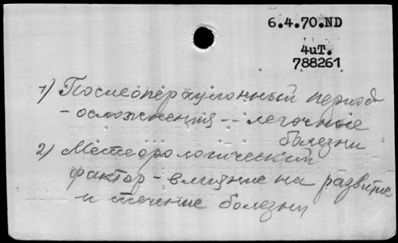 6.4.70.ND
ЧиТ.
788261
1) Послеоперационный период
- осложнения -- легочные
болезни
2) Метеорологический
фактор - влияние на развитие
и течение болезни